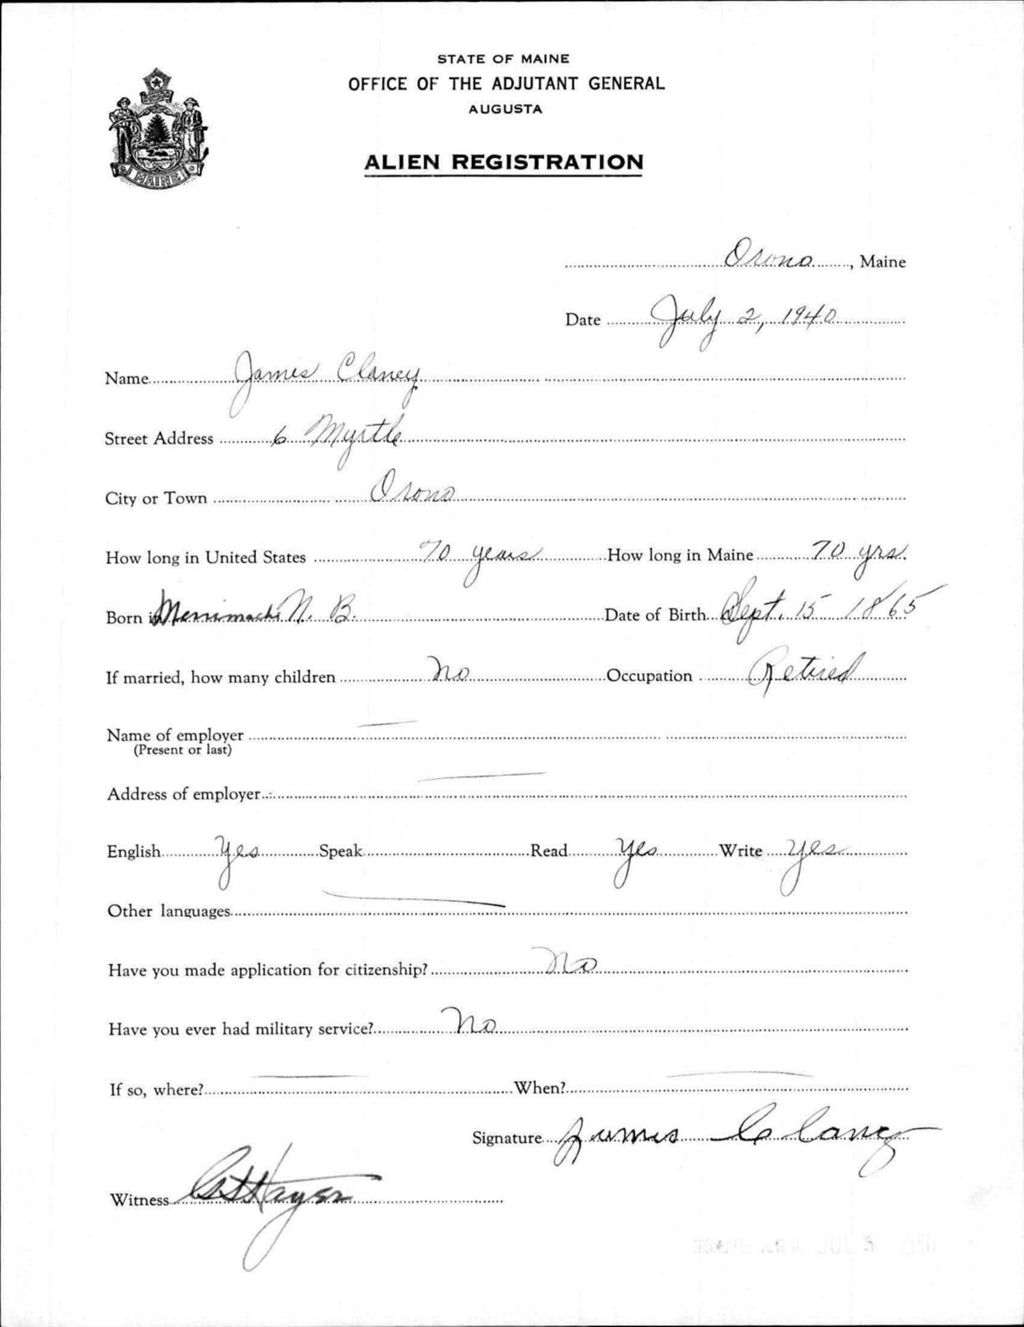 STATE OF MAINE
OFFICE OF THE ADJUTANT GENERAL
AUGUSTA
ALIEN REGISTRATION
MAINE
Orono, Maine
Date July 2, 1940
Name James Clancy
Street Address 6 Myrtle
City or Town Orono
How long in United States 70 years How long in Maine 70 yrs.
Born in Merrimachi N. B. Date of Birth Sept. 15 1865
If married, how many children No Occupation Retired
Name of employer
(Present or last)
Address of employer
English Yes Speak Read Yes Write Yes
Other languages
Have you made application for citizenship? No
Have you ever had military service? No
If so, where? When?
Signature James Clancy
Witness